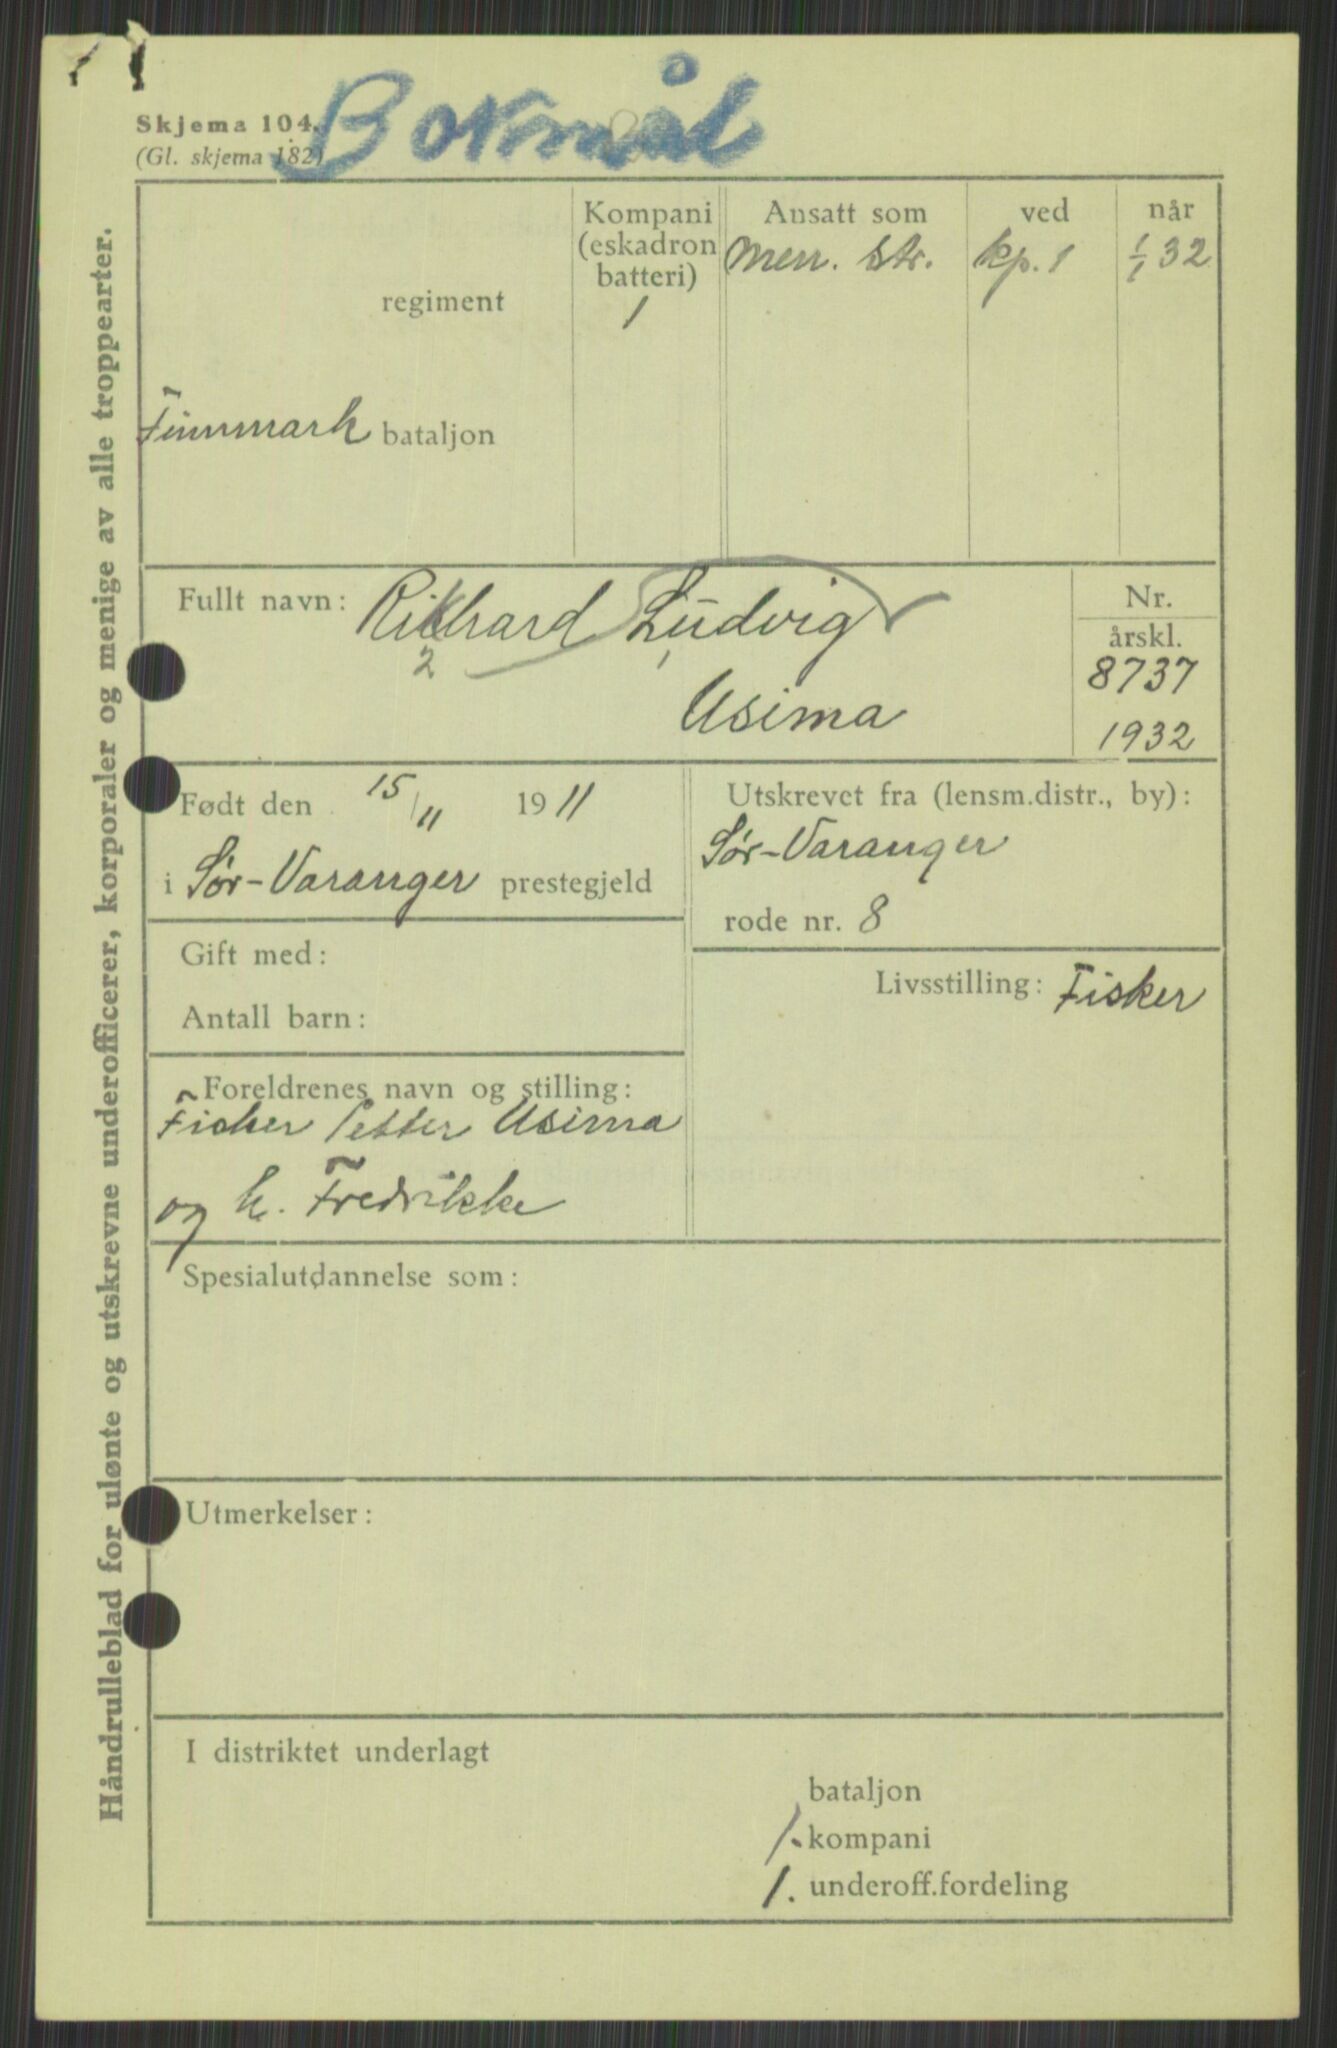 Bokmål
Skjema 104.
(Gl. skjema 182)
Håndrulleblad for ulønte og utskrevne underofficerer, korporaler og menige av alle troppearter.
regiment
Finnmark bataljon
Kompani
(eskadron
batteri)
1
Ansatt som
Men. str.
ved
kp. 1
når
1/1 32
Fullt navn: Rikhard Ludvig
2 1
Usima
Nr.
årskl.
8737
1932
Født den 15/11 1911
i Sør-Varanger prestegjeld
Utskrevet fra (lensm.distr., by):
Sør-Varanger
rode nr. 8
Gift med:
Antall barn:
Livsstilling: Fisker
Foreldrenes navn og stilling:
Fisker Petter Usima
og h. Fredrikke
Spesialutdannelse som:
Utmerkelser:
I distriktet underlagt
bataljon
1. kompani
1. underoff.fordeling